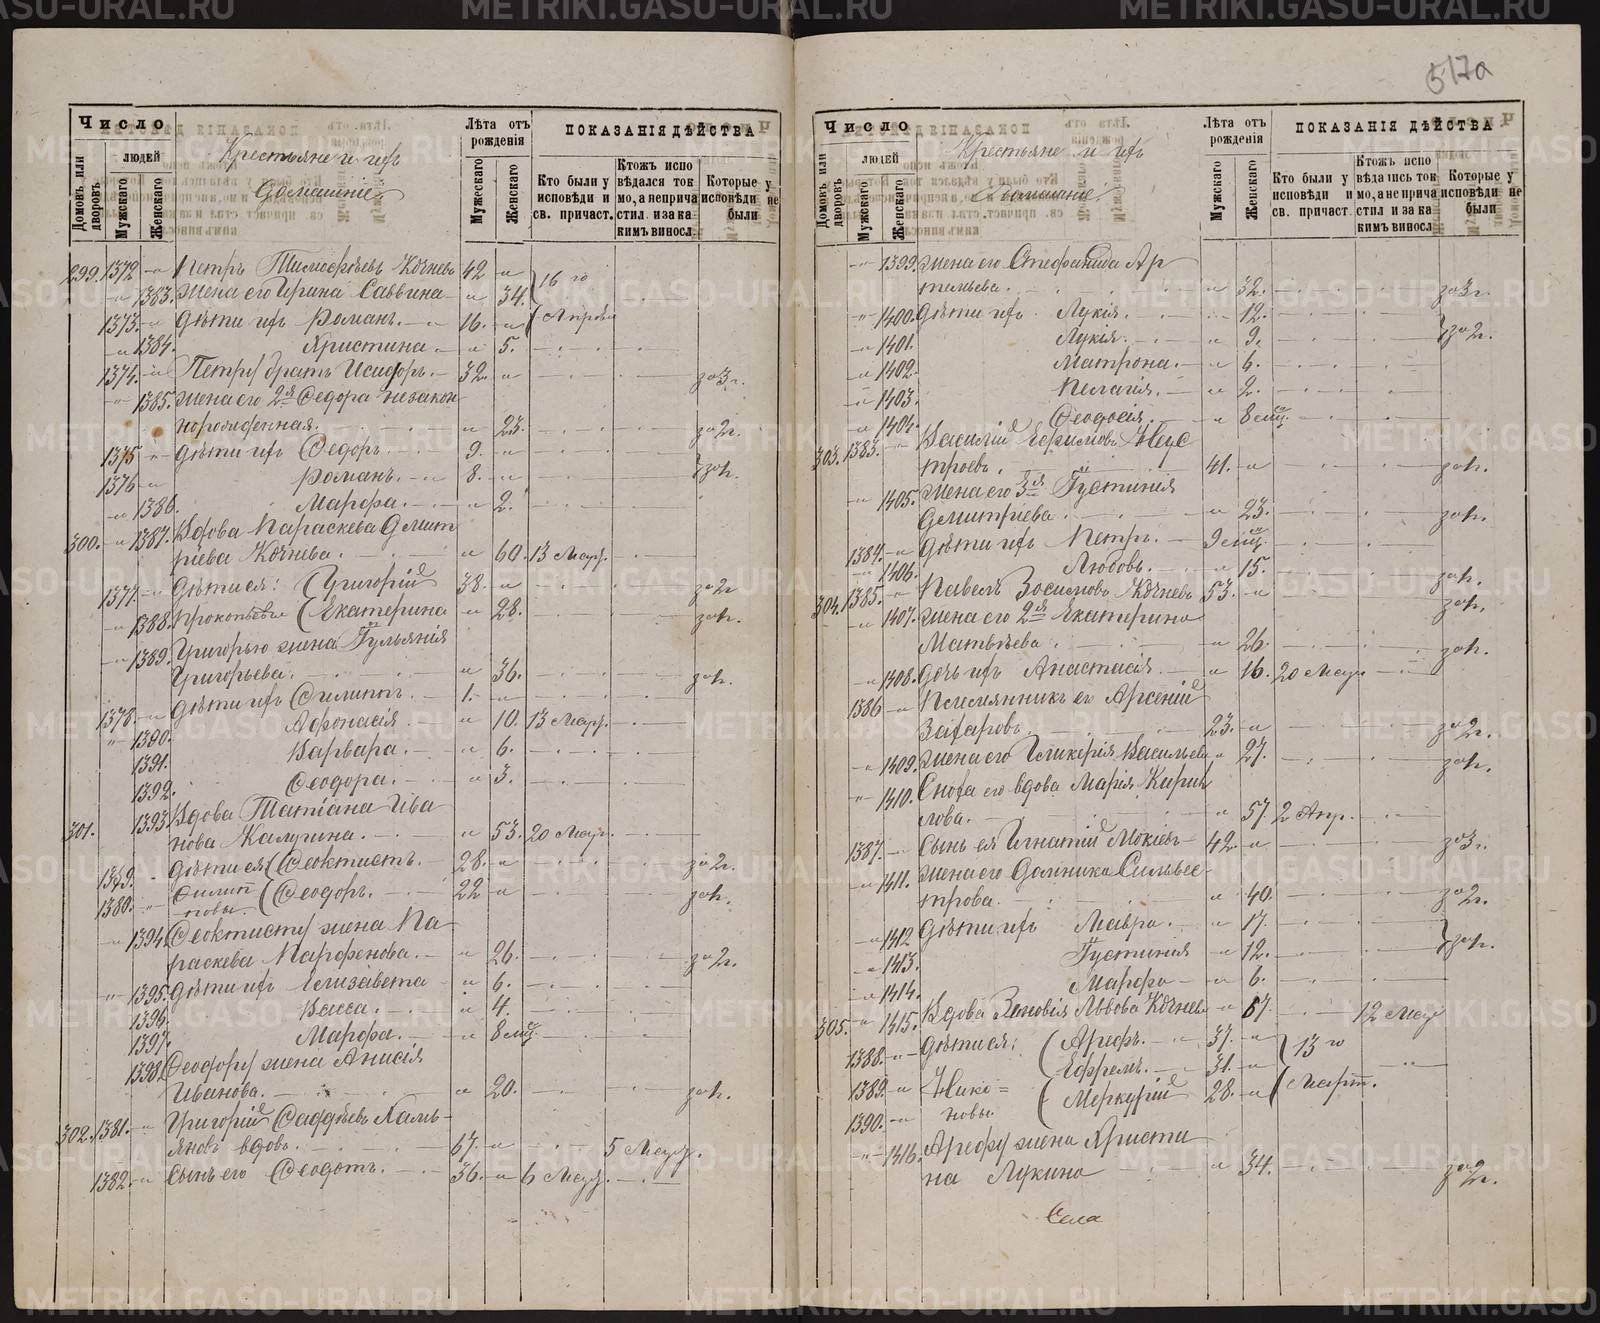 Число
Домовъ или дворовъ
людей
Мужскаго
Женскаго
Крестьяне и ихъ
домашніе
Лѣта отъ рожденія
Мужскаго
Женскаго
ПОКАЗАНІЯ ДѢЙСТВА
Кто были у исповѣди и св. причаст.
Ктожъ испо вѣдался ток мо, а не прича стил и за ка кимъ виносл.
Которые у исповѣди не были
299. 1372 Петръ Тимофѣевъ Кочневъ 42 16 го
1383. жена его Ирина Саввина 34.
1373. дѣти ихъ Романъ. 16. Апрѣля
1384. Христина. 5.
1374. Петру братъ Исидоръ. 32. за 3 г.
1385. жена его 2я Ѳедора незакон
норожденная. 23. за 2 г.
1375 дѣти ихъ Ѳедоръ. 9.
1376 Романъ. 8.
1386. Марфа. 2.
300. 1387. Вдова Параскева Дмит
ріева Кочнева. 60. 13 Мар.
1377. дѣти ея: Григорій 38. за 2 г
1388. Прокопьевы Екатерина 28.
1389. Григорью жена Іульянія
Григорьева. 36.
1378. дѣти ихъ Филиппъ. 1.
1390. Афонасія. 10. 13 Мар.
1391. Варвара. 6.
1392. Ѳеодора. 3.
301. 1393. Вдова Татіана Ива
нова Калугина. 53. 20 Мар.
1379. дѣти ея Ѳеоктистъ. 28. за 2 г.
1380. Филип повы. Ѳеодоръ. 22
1394. Ѳеоктисту жена Па
раскева Парфенова. 26. за 2 г.
1395. дѣти ихъ Елизавета 6.
1396. Васса. 4.
1397. Марфа. 8 мц.
1398. Ѳеодору жена Анисія
Иванова. 20.
302. 1381. Григорій Ѳаддѣевъ
вдовъ. 67. 5 Мар.
1382. Сынъ его Ѳеодотъ. 36. 6 Мар.
517а
Число
Домовъ или дворовъ
людей
Мужскаго
Женскаго
Крестьяне и ихъ
домашніе
Лѣта отъ рожденія
Мужскаго
Женскаго
ПОКАЗАНІЯ ДѢЙСТВА
Кто были у исповѣди и св. причаст
Ктожъ испо вѣдались ток мо, а не прича стил и за ка кимъ виносл
Которые у исповѣди не были
1399. жена его Стефанида Ар
тильева. 32. за 3 г.
1400. дѣти ихъ Лукія. 12.
1401. Лукія. 9. за 2 г.
1402. Матрона. 6.
1403. Пелагія. 2.
1404. Ѳеодосія. 8 мц.
303. 1383. Василій Ефимовъ
41.
1405. жена его 3я Іустинія
Дмитріева 23.
1384. дѣти ихъ Петръ. 9 мц.
1406. Любовь. 15.
304. 1385. Павелъ Зосимовъ Кочневъ 53.
1407. жена его 2я Екатерина
Матвѣева. 26
1408. дочь ихъ Анастасія. 16. 20 Мар.
1386 Племянникъ его Арсеній
Захаровъ. 23. за 2 г.
1409. жена его Гликерія Васильева 27.
1410. Сноха его вдова Марія Кирил
лова. 57. 2 Апр.
1387. Сынъ ея Игнатій Мокіевъ 42. за 3 г.
1411. жена его Домника Сильвес
трова. 40. за 2 г.
1412 дѣти ихъ Мавра. 17.
1413. Іустинія 12.
1414. Марфа 6.
305. 1415. Вдова Зеновія Львова Кочнева 67. 12 Мар
1388. дѣти ея: Арефъ. 37. 13 го
1389. Нико= Ефремъ. 31.
1390. новы Меркурій 28. Март.
1416. Арефу жена Христи
на Лукина 34. за 2 г.
Села
METRIKI.GASO-URAL.RU